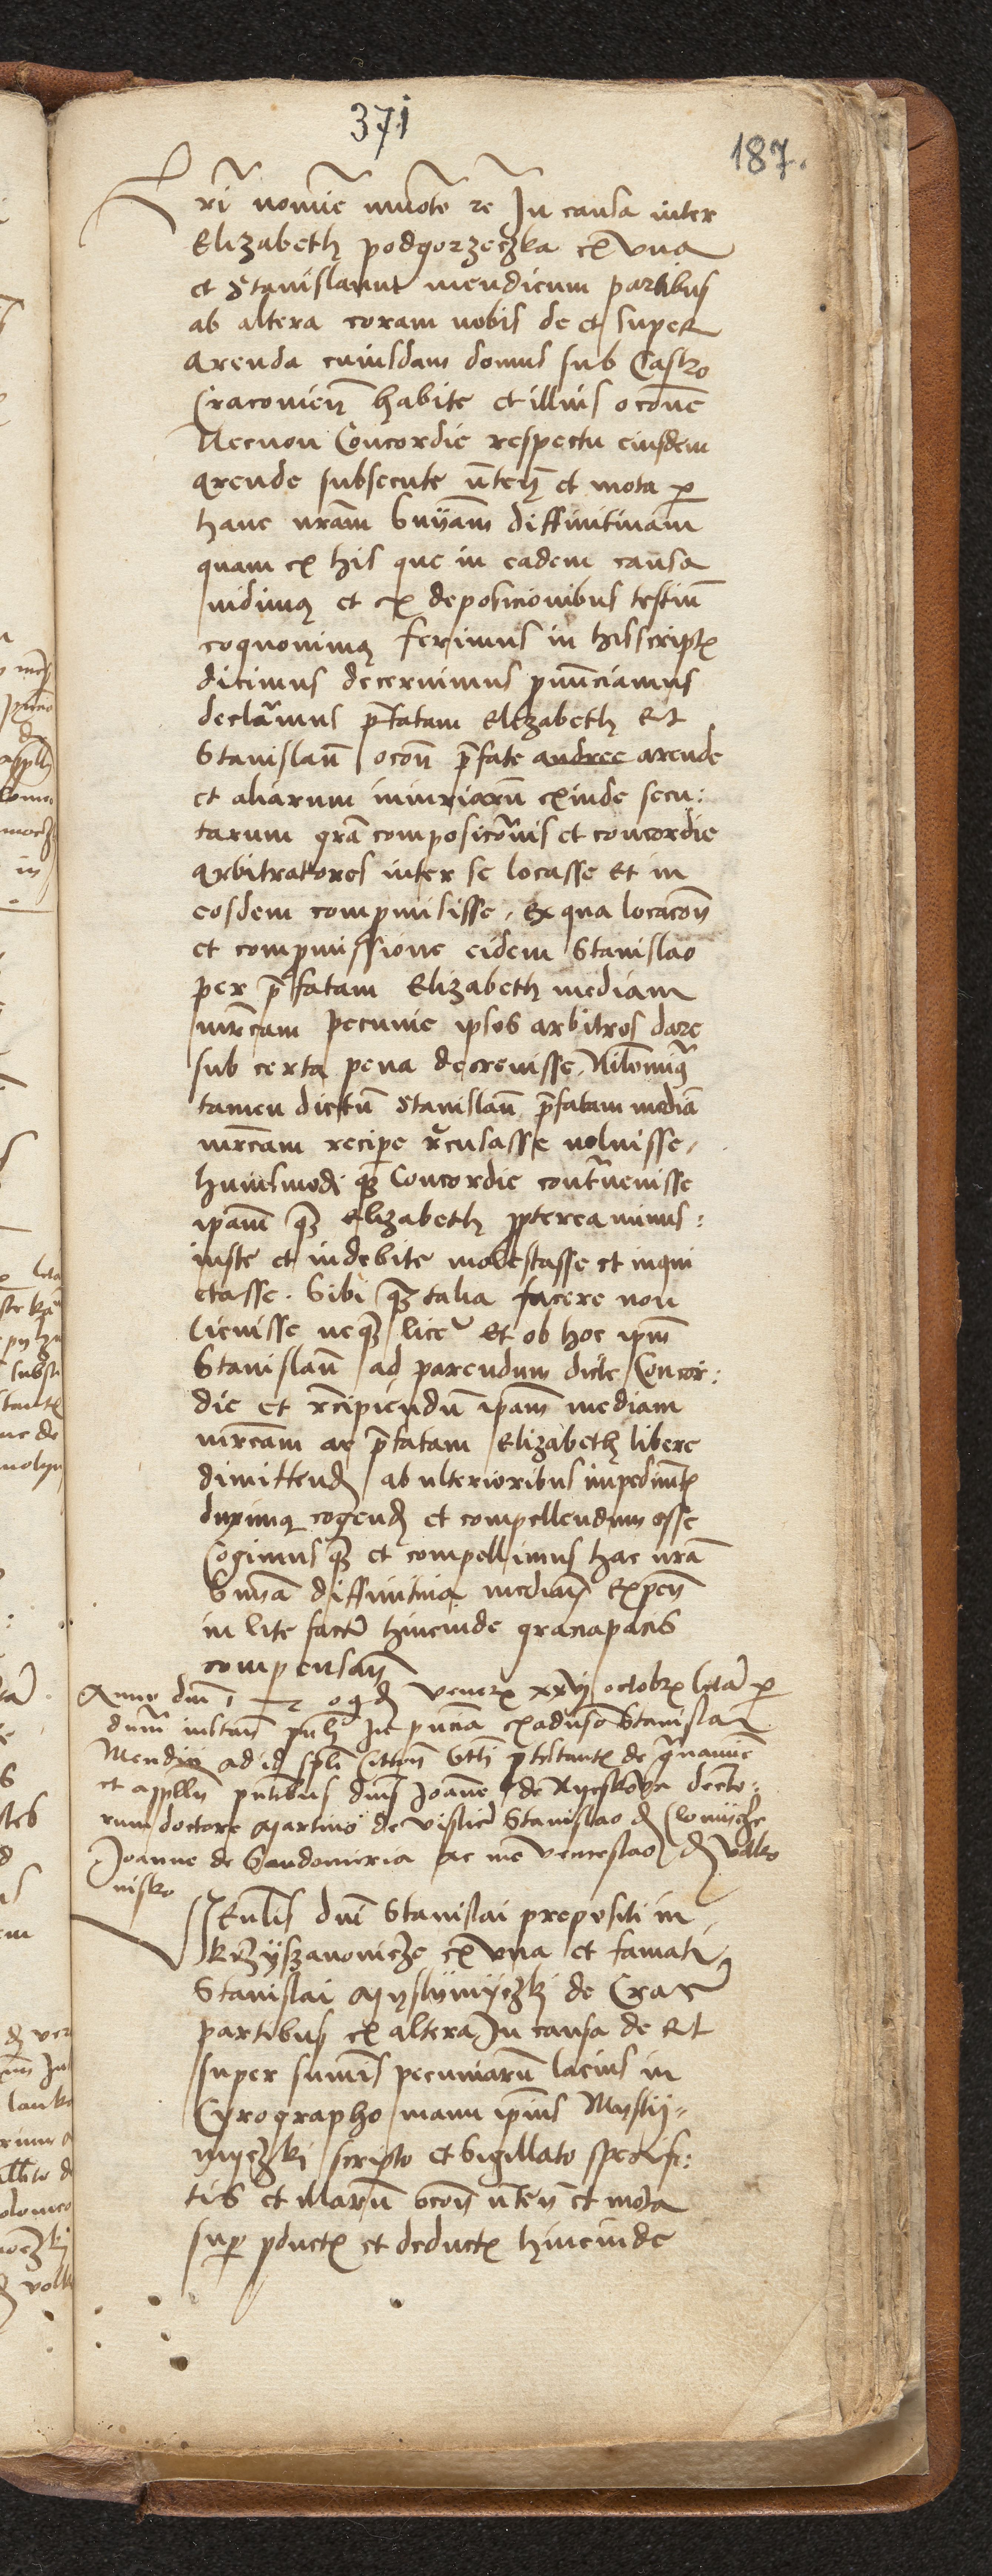 371
187.
Xri noīe inuoto rc In causa inter
Elizabeth podgorzeczka ex vna
et Stanislaum mendicum partibus
ab altera coram nobis de et super
Arenda cuiusdam domus sub Castro
Cracouien̄ habite et illius occōne
Necnon Concordie respectu eiusdem
arende subsecute vten̄ et mota p
hanc nrām Snīam diffinitiuam
quam ex his que in eadem causa
vidimus et ex deposicionibus testiū
cognouimus ferimus in his scriptis
dicimus decernimus pnūnciamus
declāmus p̄fatam Elizabeth et
Stanislaū occōn p̄fate andree arende
et aliarum iniuriarū exinde secu:
tarum grā composicōnis et concordie
arbitratores inter se locasse Et in
eosdem compmisisse, Ex qua locacōn
et compmissione eidem Stanislao
per p̄fatam Elizabeth mediam
mrcam pecunie ipsos arbitros dare
sub certa pena decreuisse, Nilomīq
tamen dictū Stanislaū p̄fatam mediā
mrcam recipe rcusasse noluisse,
huiusmodi qȝ Concordie contuenisse
ipam qȝ Elizabeth ppterea minus:
iuste et indebite molestasse et inqui
etasse. Sibi qȝ talia facere non
licuisse neqȝ lice Et ob hoc ipm
Stanislaū ad parendum dicte Concor:
die et rcipiendū ipam mediam
mrcam ac p̄fatam Elizabeth libere
dimittend ab vlterioribus impedimtis
duximus cogend et compellendum esse
Cogimus qȝ et compellimus hac nrā
Snīa diffinitiua mediam Expen̄
in lite factis hincinde gracia pacis
compensan̄
Anno dni veneris xxvi octobris lata p
dnm In pnīa ex aduso Stanislai
Mendici ad id spli Citton̄ ptestantis de gnamīe
et appllū pntibus dnis Joanne de Ryeskowa decto:
rum doctore Martino de vislicia Stanislao d Clomycze
Joanne de Sandomiria ac me venceslao d volko
nisko
Venlis dni Stanislai prepositi in
krzyszanouicze ex vna et famati
Stanislai Myslymyczki de Crac
partibus ex altera In causa de et
super sumīs pecuniarū lacius in
Cyrographo manu ipius Mysly=
myczki scripto et Sigillato specifi:
tis et illarū occōn vten̄ et mota
sup pductis et deductis hincinde